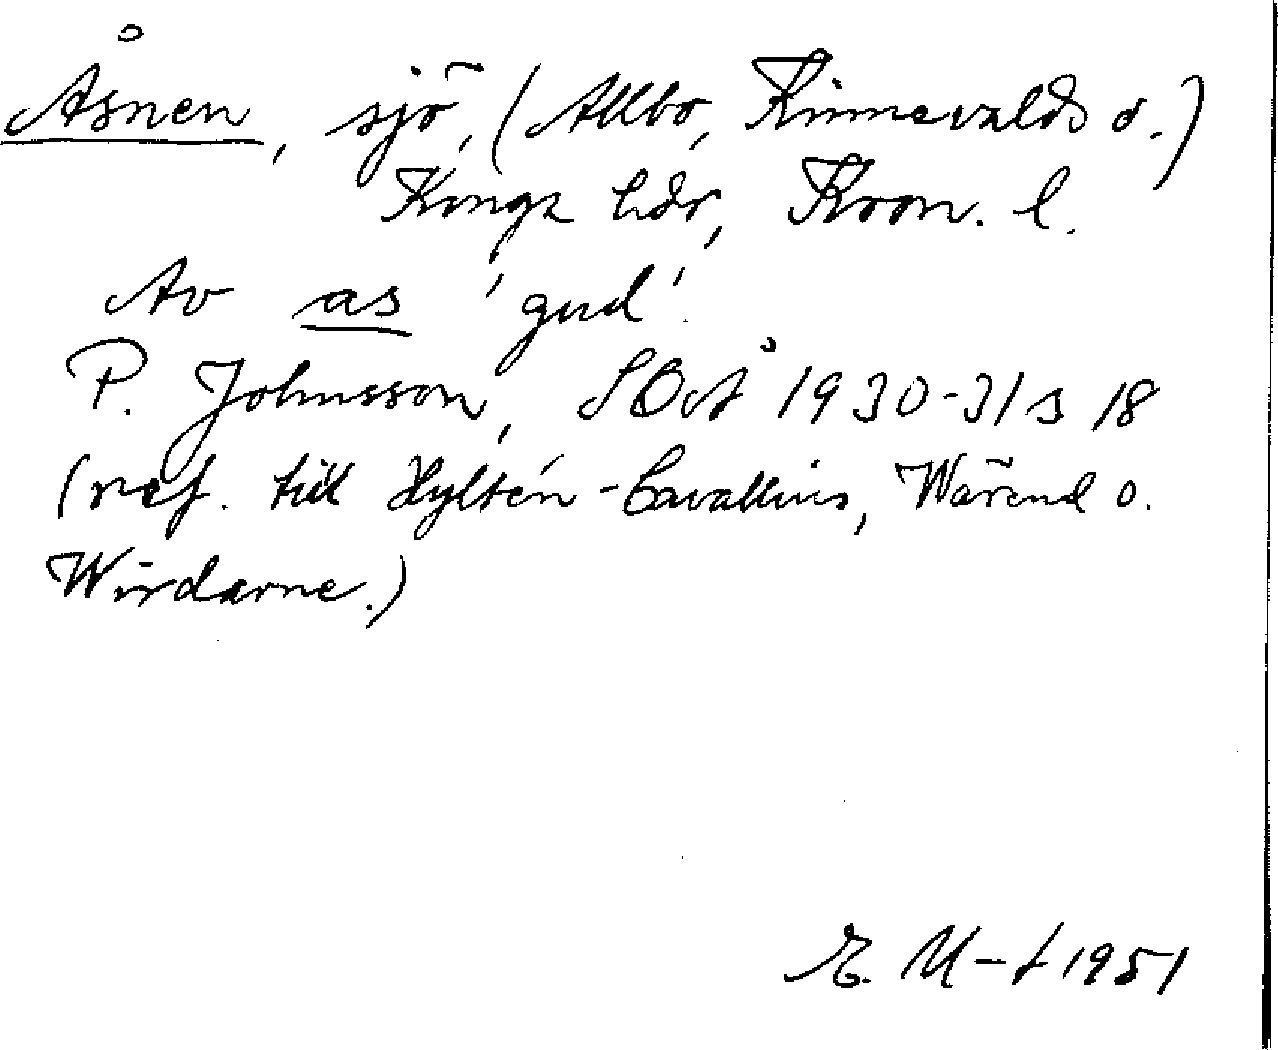 Åsnen, sjö, (Allbo, Kinnevalds o.)
Konga hdr, Kron. l.
Av as 'gud'.
P. Johnsson, SOÅ 1930-31 s 18
(ref. till Hyltén-Cavallius, Wärend o.
Wirdarne.)
E. M-t 1951